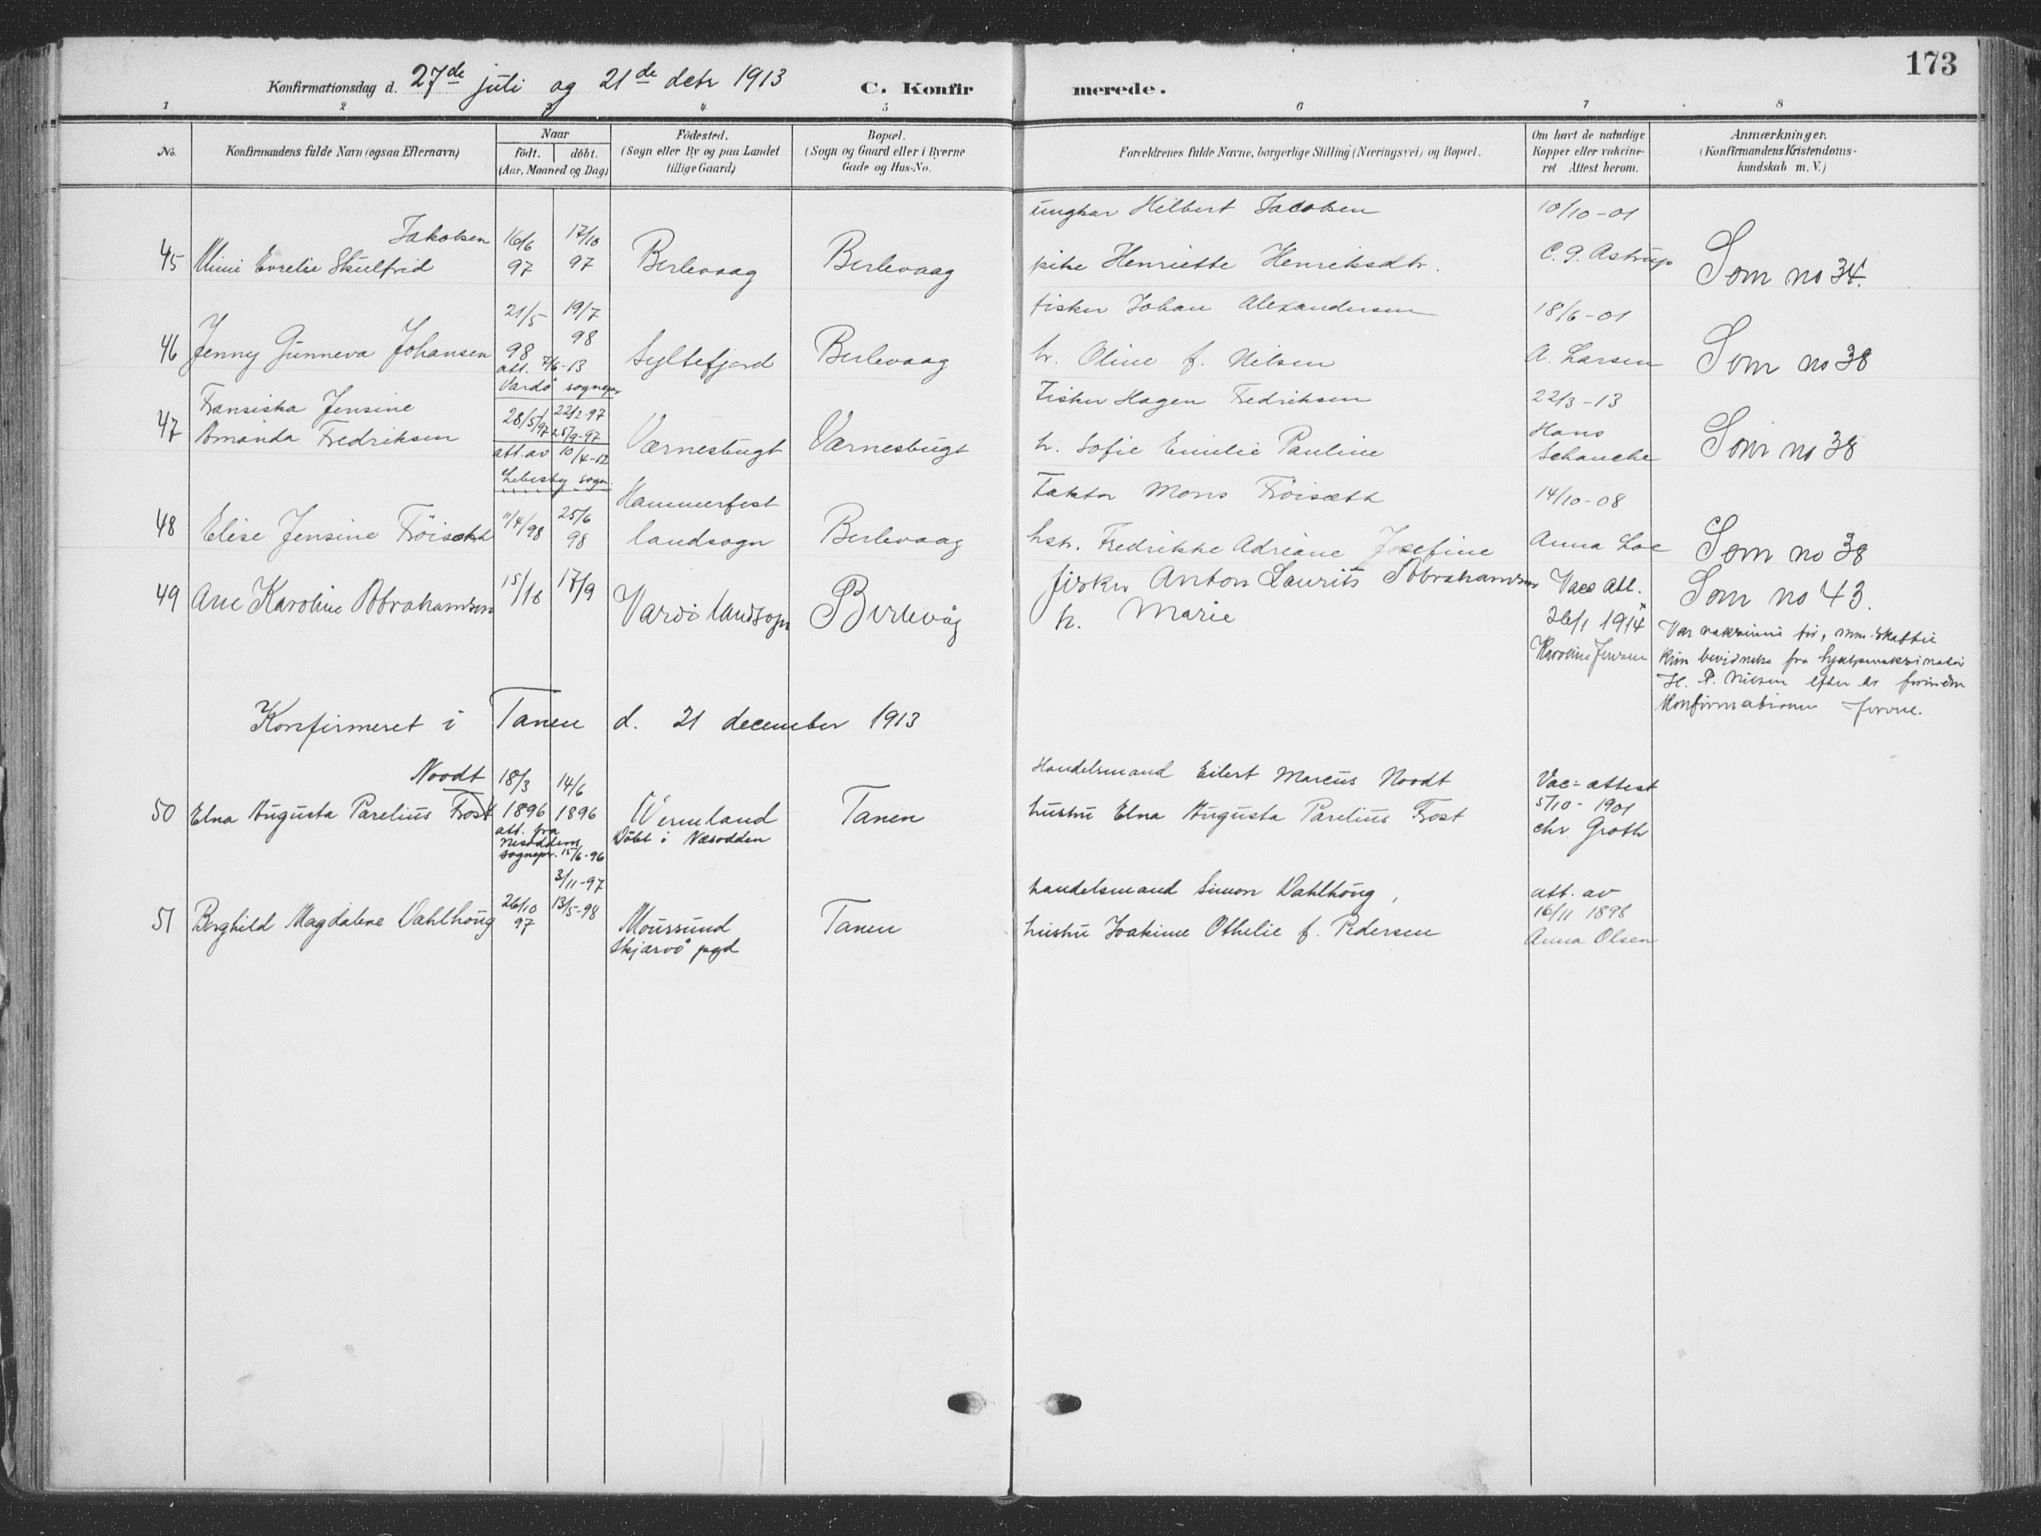 173
Konfirmationsdag d. 27de juli og 21de debr 1913 C. Konfirmerede.
1 2 3 4 5 6 7 8
No.
Konfirmandens fulde Navn (ogsaa Efternavn)
Naar
födt. döbt.
(Aar, Maaned og Dag)
Födested.
(Sogn eller By og paa Landet
tillige Gaard)
Bopæl.
(Sogn og Gaard eller i Byerne
Gade og Hus-No.
Forældrenes fulde Navne, borgerlige Stilling (Næringsvei) og Bopæl.
Om havt de naturlige
Kopper eller vakcine-
ret Attest herom.
Anmærkninger.
(Konfirmandens Kristendoms-
kundskab m. V.)
Jakobsen 16/6 17/10 ungkar Hilbert Jacobsen 10/10-01
45 Mimi Evrelie Skulfrid 97 97 Berlevaag Berlevaag pike Henriette Henriksdtr. C. J. Astrup Som no 34.
21/5 19/7 fisker Johan Alexandersen 18/6-01
46 Jenny Gunneva Johansen 98 98 Syltefjord Berlevaag h. Oline f. Nilsen A. Larsen Som no 38
att. 7/6-13
Vardö sognepr
Fransiska Jensine 28/5/97 22/2-97 Fisker Hagen Fredriksen 22/3-13
47 Amanda Fredriksen 25/9-97 Værnesbugt Værnesbugt h. Sofie Emilie Pauline Hans Schanche Som no 38
att. av 10/4-12
Lebesby sogn.
Hammerfest Faktor Mons Fröisæth 14/10-08
48 Elise Jensine Fröisæth 11/4/98 25/6 98 landsogn Berlevaag hstr. Fredrikke Adriane Josefine Anna Loe Som no 38
49 Ane Karoline Abrahamsen 15/16 17/9 Vardö landsogn Berlevåg fisker Anton Laurits Abrahamsen Vacc att. Som no 43.
h. Marie 26/1 1914
Karoline Jensen
Var vaksineret før, men skaffet
kun bevidnelse fra hjælpevaksinatör
H. P. Nilsen
Konfirmationen
Konfirmeret i Tanen d. 21 december 1913
Noodt 18/3 14/6 Handelsmand Eilert Marcus Noodt Vac-attest
50 Elna Augusta Parelius Frost 1896 1896 Wermland Tanen hustru Elna Augusta Parelius Frost 5/10-1901
att. fra Nesoddens sognepr. 15/6-96 Döbt i Næsodden chr Groth
3/11-97 handelsmand Simon Dahlhöug, att. av
51 Borghild Magdalene Dahlhöug 26/10 97 13/5-98 Moursund Tanen hustru Joakime Othelie f. Pedersen 16/11 1898
Skjærvö pgd Anna Olsen